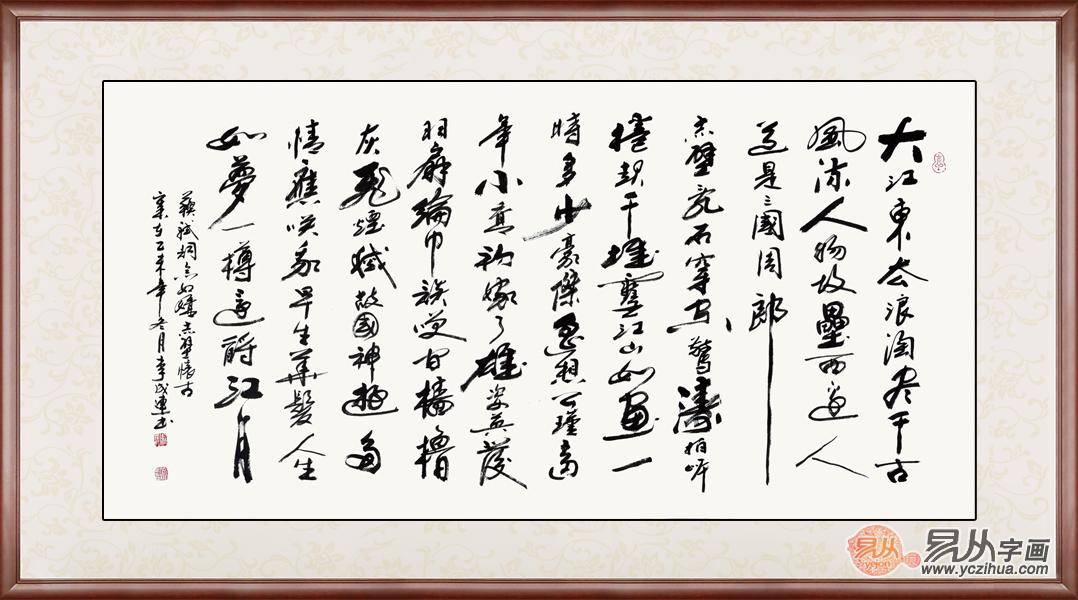 大江東去浪淘盡千古
風流人物故壘西邊人
道是三國周郎
赤壁亂石穿空驚濤拍岸
捲起千堆雪江山如畫一
時多少豪傑遙想公瑾當
年小喬初嫁了雄姿英發
羽扇綸巾談笑間檣櫓
灰飛煙滅故國神遊多
情應笑我早生華髮人生
如夢一樽還酹江月
蘇軾詞念奴嬌赤壁懷古
歲在乙未年冬月李成連書
易从
yicong
易从字画
www.yczihua.com